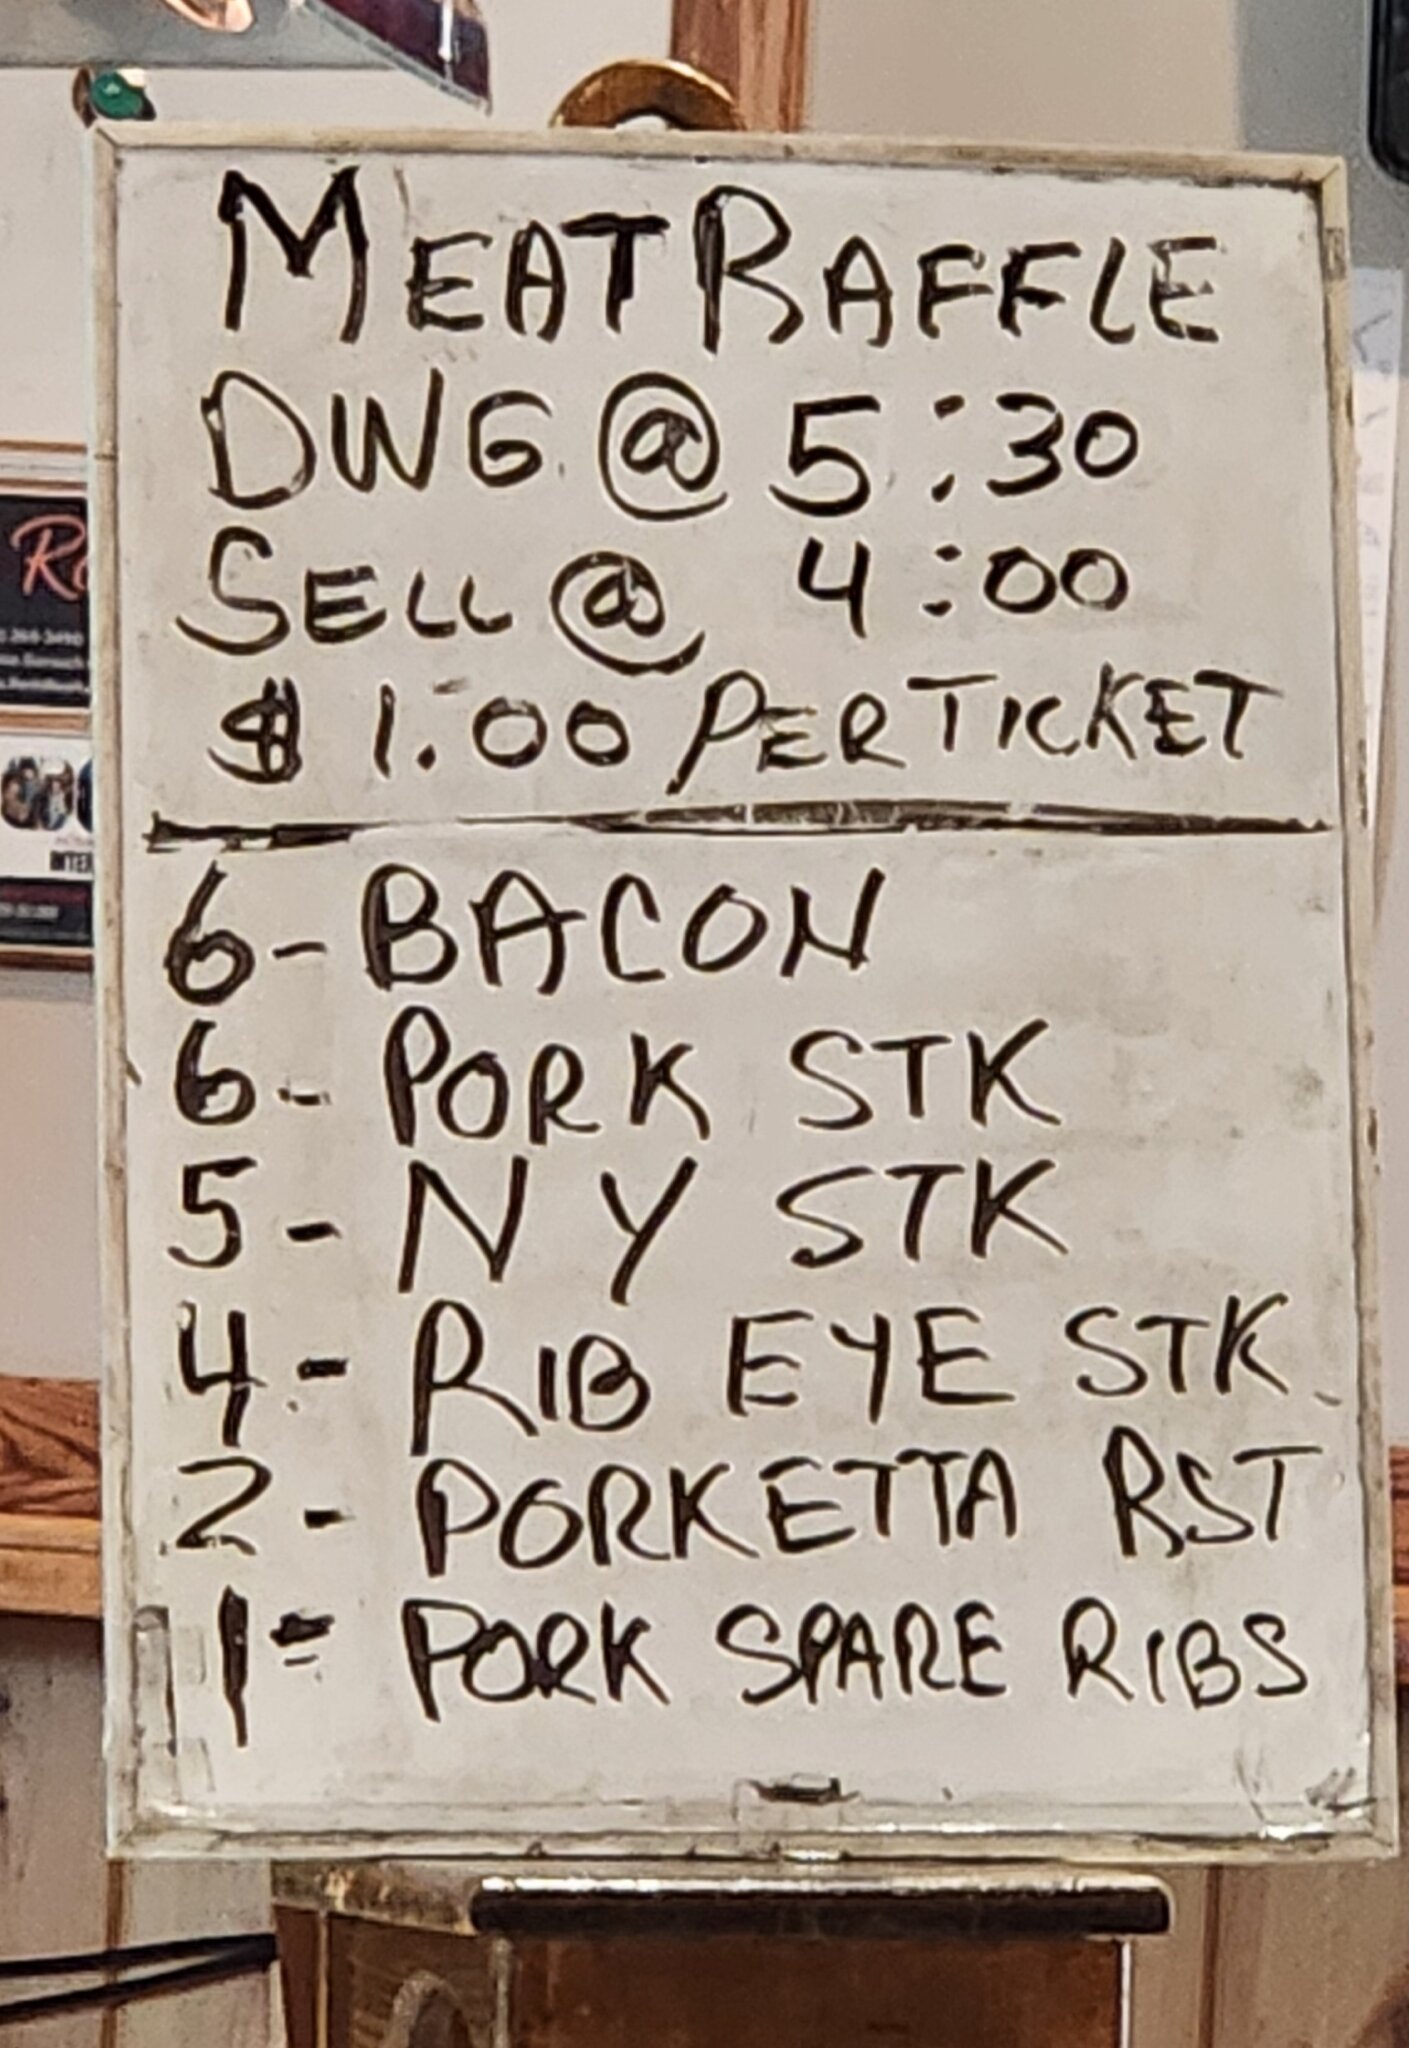 MEAT RAFFLE
DWG @ 5:30
SELL @ 4:00
$1.00 PER TICKET
6- BACON
6- PORK STK
5- NY STK
4- RIB EYE STK
2- PORKETTA RST
1= PORK SPARE RIBS
INTER